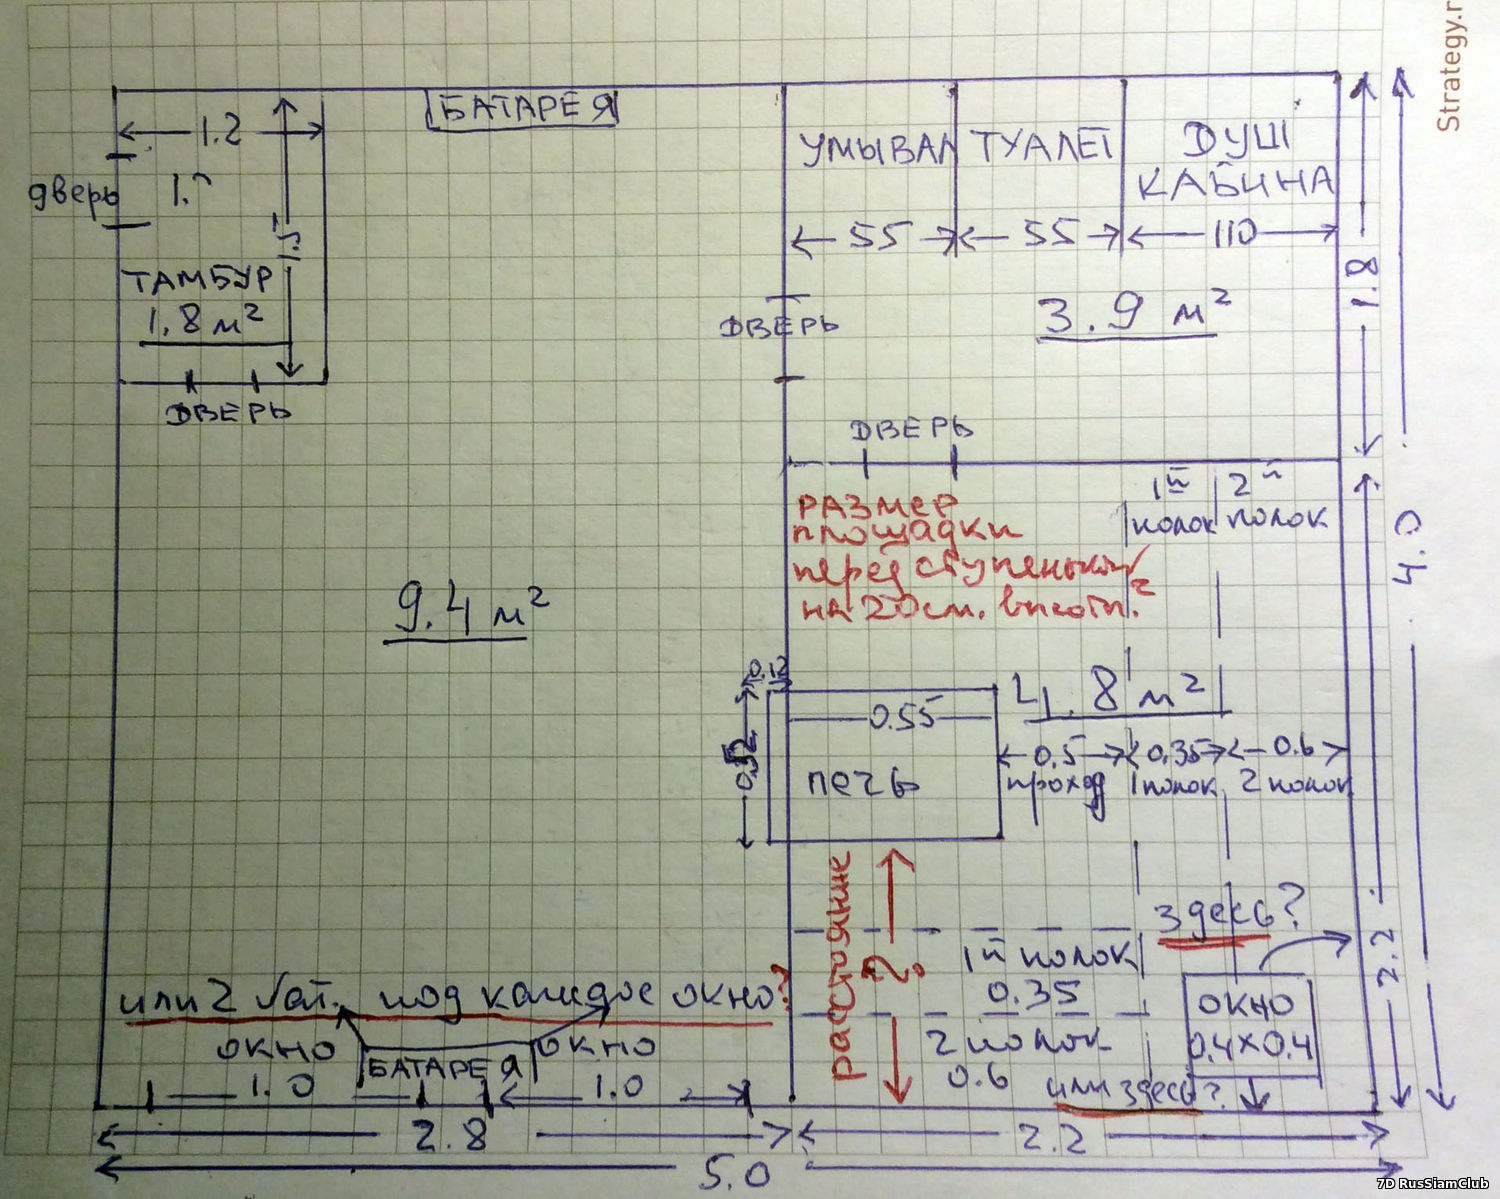 Strategy.r
БАТАРЕЯ
1.2
1.5
дверь
ТАМБУР
1.8 м²
ДВЕРЬ
УМЫВАЛ
ТУАЛЕТ
ДУШ
КАБИНА
55
55
110
3.9 м²
ДВЕРЬ
ДВЕРЬ
1.8
4.0
2.2
РАЗМЕР
площадки
перед ступенькой
на 20 см. высоты?
1й
полок
2й
полок
9.4 м²
4.8 м²
0.12
0.55
печь
0.5
проход
0.35
1 полок
0.6
2 полок
расстояние
?
1й полок
0.35
2 полок
0.6
здесь?
окно
0.4×0.4
или здесь?
или 2 бат. под каждое окно?
окно
1.0
БАТАРЕЯ
окно
1.0
2.8
2.2
5.0
7D RusSiamClub